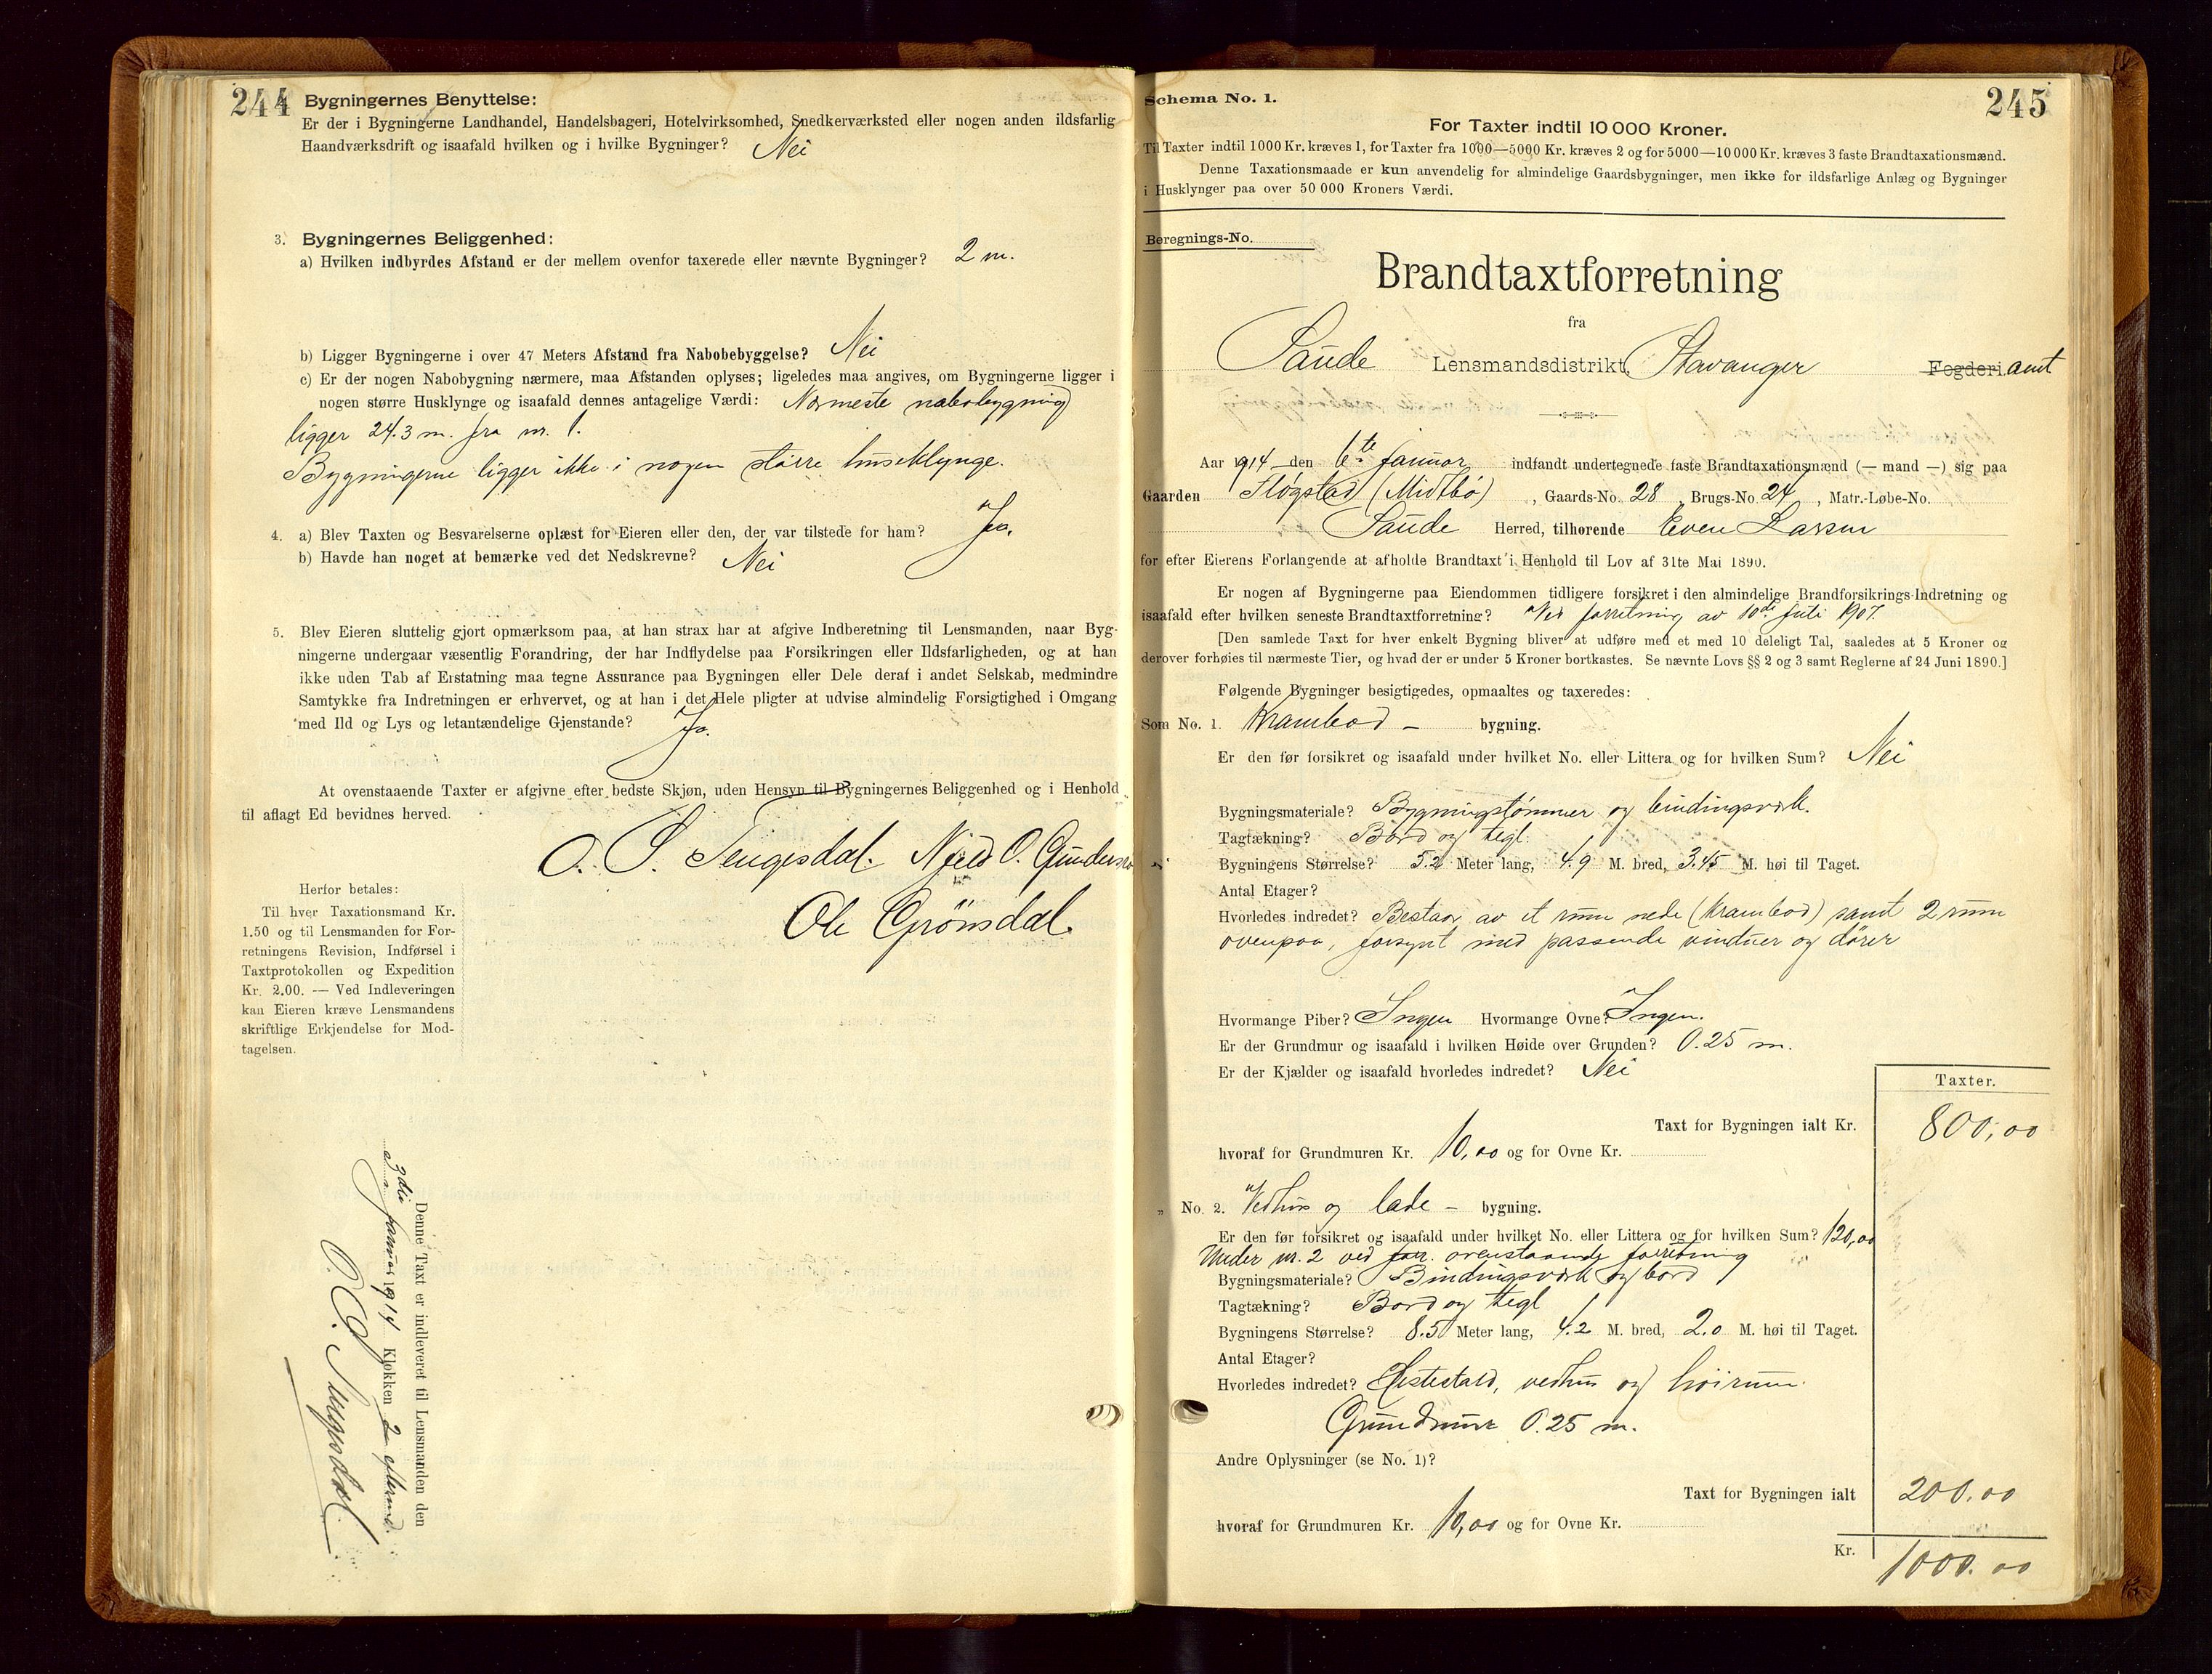 244 Bygningernes Benyttelse:
Er der i Bygningerne Landhandel, Handelsbageri, Hotelvirksomhed, Snedkerværksted eller nogen anden ildsfarlig
Haandværksdrift og isaafald hvilken og i hvilke Bygninger? Nei
3. Bygningernes Beliggenhed:
a) Hvilken indbyrdes Afstand er der mellem ovenfor taxerede eller nævnte Bygninger? 2 m.
b) Ligger Bygningerne i over 47 Meters Afstand fra Nabobebyggelse? Nei
c) Er der nogen Nabobygning nærmere, maa Afstanden oplyses; ligeledes maa angives, om Bygningerne ligger i
nogen større Husklynge og isaafald dennes antagelige Værdi: Nærmeste nabobygning
ligger 24.3 m. fra nr. 1.
Bygningerne ligger ikke i nogen større huseklynge.
4. a) Blev Taxten og Besvarelserne oplæst for Eieren eller den, der var tilstede for ham? Ja.
b) Havde han noget at bemærke ved det Nedskrevne? Nei
5. Blev Eieren sluttelig gjort opmærksom paa, at han strax har at afgive Indberetning til Lensmanden, naar Byg-
ningerne undergaar væsentlig Forandring, der har Indflydelse paa Forsikringen eller Ildsfarligheden, og at han
ikke uden Tab af Erstatning maa tegne Assurance paa Bygningen eller Dele deraf i andet Selskab, medmindre
Samtykke fra Indretningen er erhvervet, og at han i det Hele pligter at udvise almindelig Forsigtighed i Omgang
med Ild og Lys og letantændelige Gjenstande? Ja.
At ovenstaaende Taxter er afgivne efter bedste Skjøn, uden Hensyn til Bygningernes Beliggenhed og i Henhold
til aflagt Ed bevidnes herved.
O. S. Tengesdal. Njeld O. Gundersen
Ole Grönsdal.
Herfor betales:
Til hver Taxationsmand Kr.
1.50 og til Lensmanden for For-
retningens Revision, Indførsel i
Taxtprotokollen og Expedition
Kr. 2.00. — Ved Indleveringen
kan Eieren kræve Lensmandens
skriftlige Erkjendelse for Mod-
tagelsen.
Denne Taxt er indleveret til Lensmanden den
januar 1914 Klokken 2 efterm.
245
Schema No. 1.
For Taxter indtil 10 000 Kroner.
Til Taxter indtil 1000 Kr. kræves 1, for Taxter fra 1000—5000 Kr. kræves 2 og for 5000—10 000 Kr. kræves 3 faste Brandtaxationsmænd.
Denne Taxationsmaade er kun anvendelig for almindelige Gaardsbygninger, men ikke for ildsfarlige Anlæg og Bygninger
i Husklynger paa over 50 000 Kroners Værdi.
Beregnings-No.
Brandtaxtforretning
fra
Saude Lensmandsdistrikt, Stavanger Fogderi amt
Aar 1914 den 6te januar indfandt undertegnede faste Brandtaxationsmænd (— mand —) sig paa
Gaarden Fløgstad (Midtbø), Gaards-No. 28, Brugs-No. 24, Matr.-Løbe-No.
Saude Herred, tilhørende Even Larsen
for efter Eierens Forlangende at afholde Brandtaxt i Henhold til Lov af 31te Mai 1890.
Er nogen af Bygningerne paa Eiendommen tidligere forsikret i den almindelige Brandforsikrings-Indretning og
isaafald efter hvilken seneste Brandtaxtforretning? Ved forretning av 10de juli 1907.
[Den samlede Taxt for hver enkelt Bygning bliver at udføre med et med 10 deleligt Tal, saaledes at 5 Kroner og
derover forhøies til nærmeste Tier, og hvad der er under 5 Kroner bortkastes. Se nævnte Lovs §§ 2 og 3 samt Reglerne af 24 Juni 1890.]
Følgende Bygninger besigtigedes, opmaaltes og taxeredes:
Som No. 1. Krambod - bygning.
Er den før forsikret og isaafald under hvilket No. eller Littera og for hvilken Sum? Nei
Bygningsmateriale? Bygningstømmer og bindingsverk.
Tagtækning? Bord og tegl.
Bygningens Størrelse? 5.2 Meter lang, 4.9 M. bred, 3.45 M. høi til Taget.
Antal Etager?
Hvorledes indredet? Bestaar av et rum nede (krambod) samt 2 rum
ovenpaa, forsynt med passende vinduer og dører
Hvormange Piber? Ingen Hvormange Ovne? Ingen.
Er der Grundmur og isaafald i hvilken Høide over Grunden? 0.25 m.
Er der Kjælder og isaafald hvorledes indredet? Nei
Taxter.
Taxt for Bygningen ialt Kr. 800,00
hvoraf for Grundmuren Kr. 10,00 og for Ovne Kr.
" No. 2. Vedhus og lade - bygning.
Er den før forsikret og isaafald under hvilket No. eller Littera og for hvilken Sum? 120,00
Under nr. 2 ved forr. ovenstaaende forretning
Bygningsmateriale? Bindingsverk og bord
Tagtækning? Bord og tegl
Bygningens Størrelse? 8.5 Meter lang, 4.2 M. bred, 2.0 M. høi til Taget.
Antal Etager?
Hvorledes indredet? Hestestald, vedhus og høirum.
Grundmur 0.25 m.
Andre Oplysninger (se No. 1)?
Taxt for Bygningen ialt 200.00
hvoraf for Grundmuren Kr. 10,00 og for Ovne Kr.
Kr. 1000.00